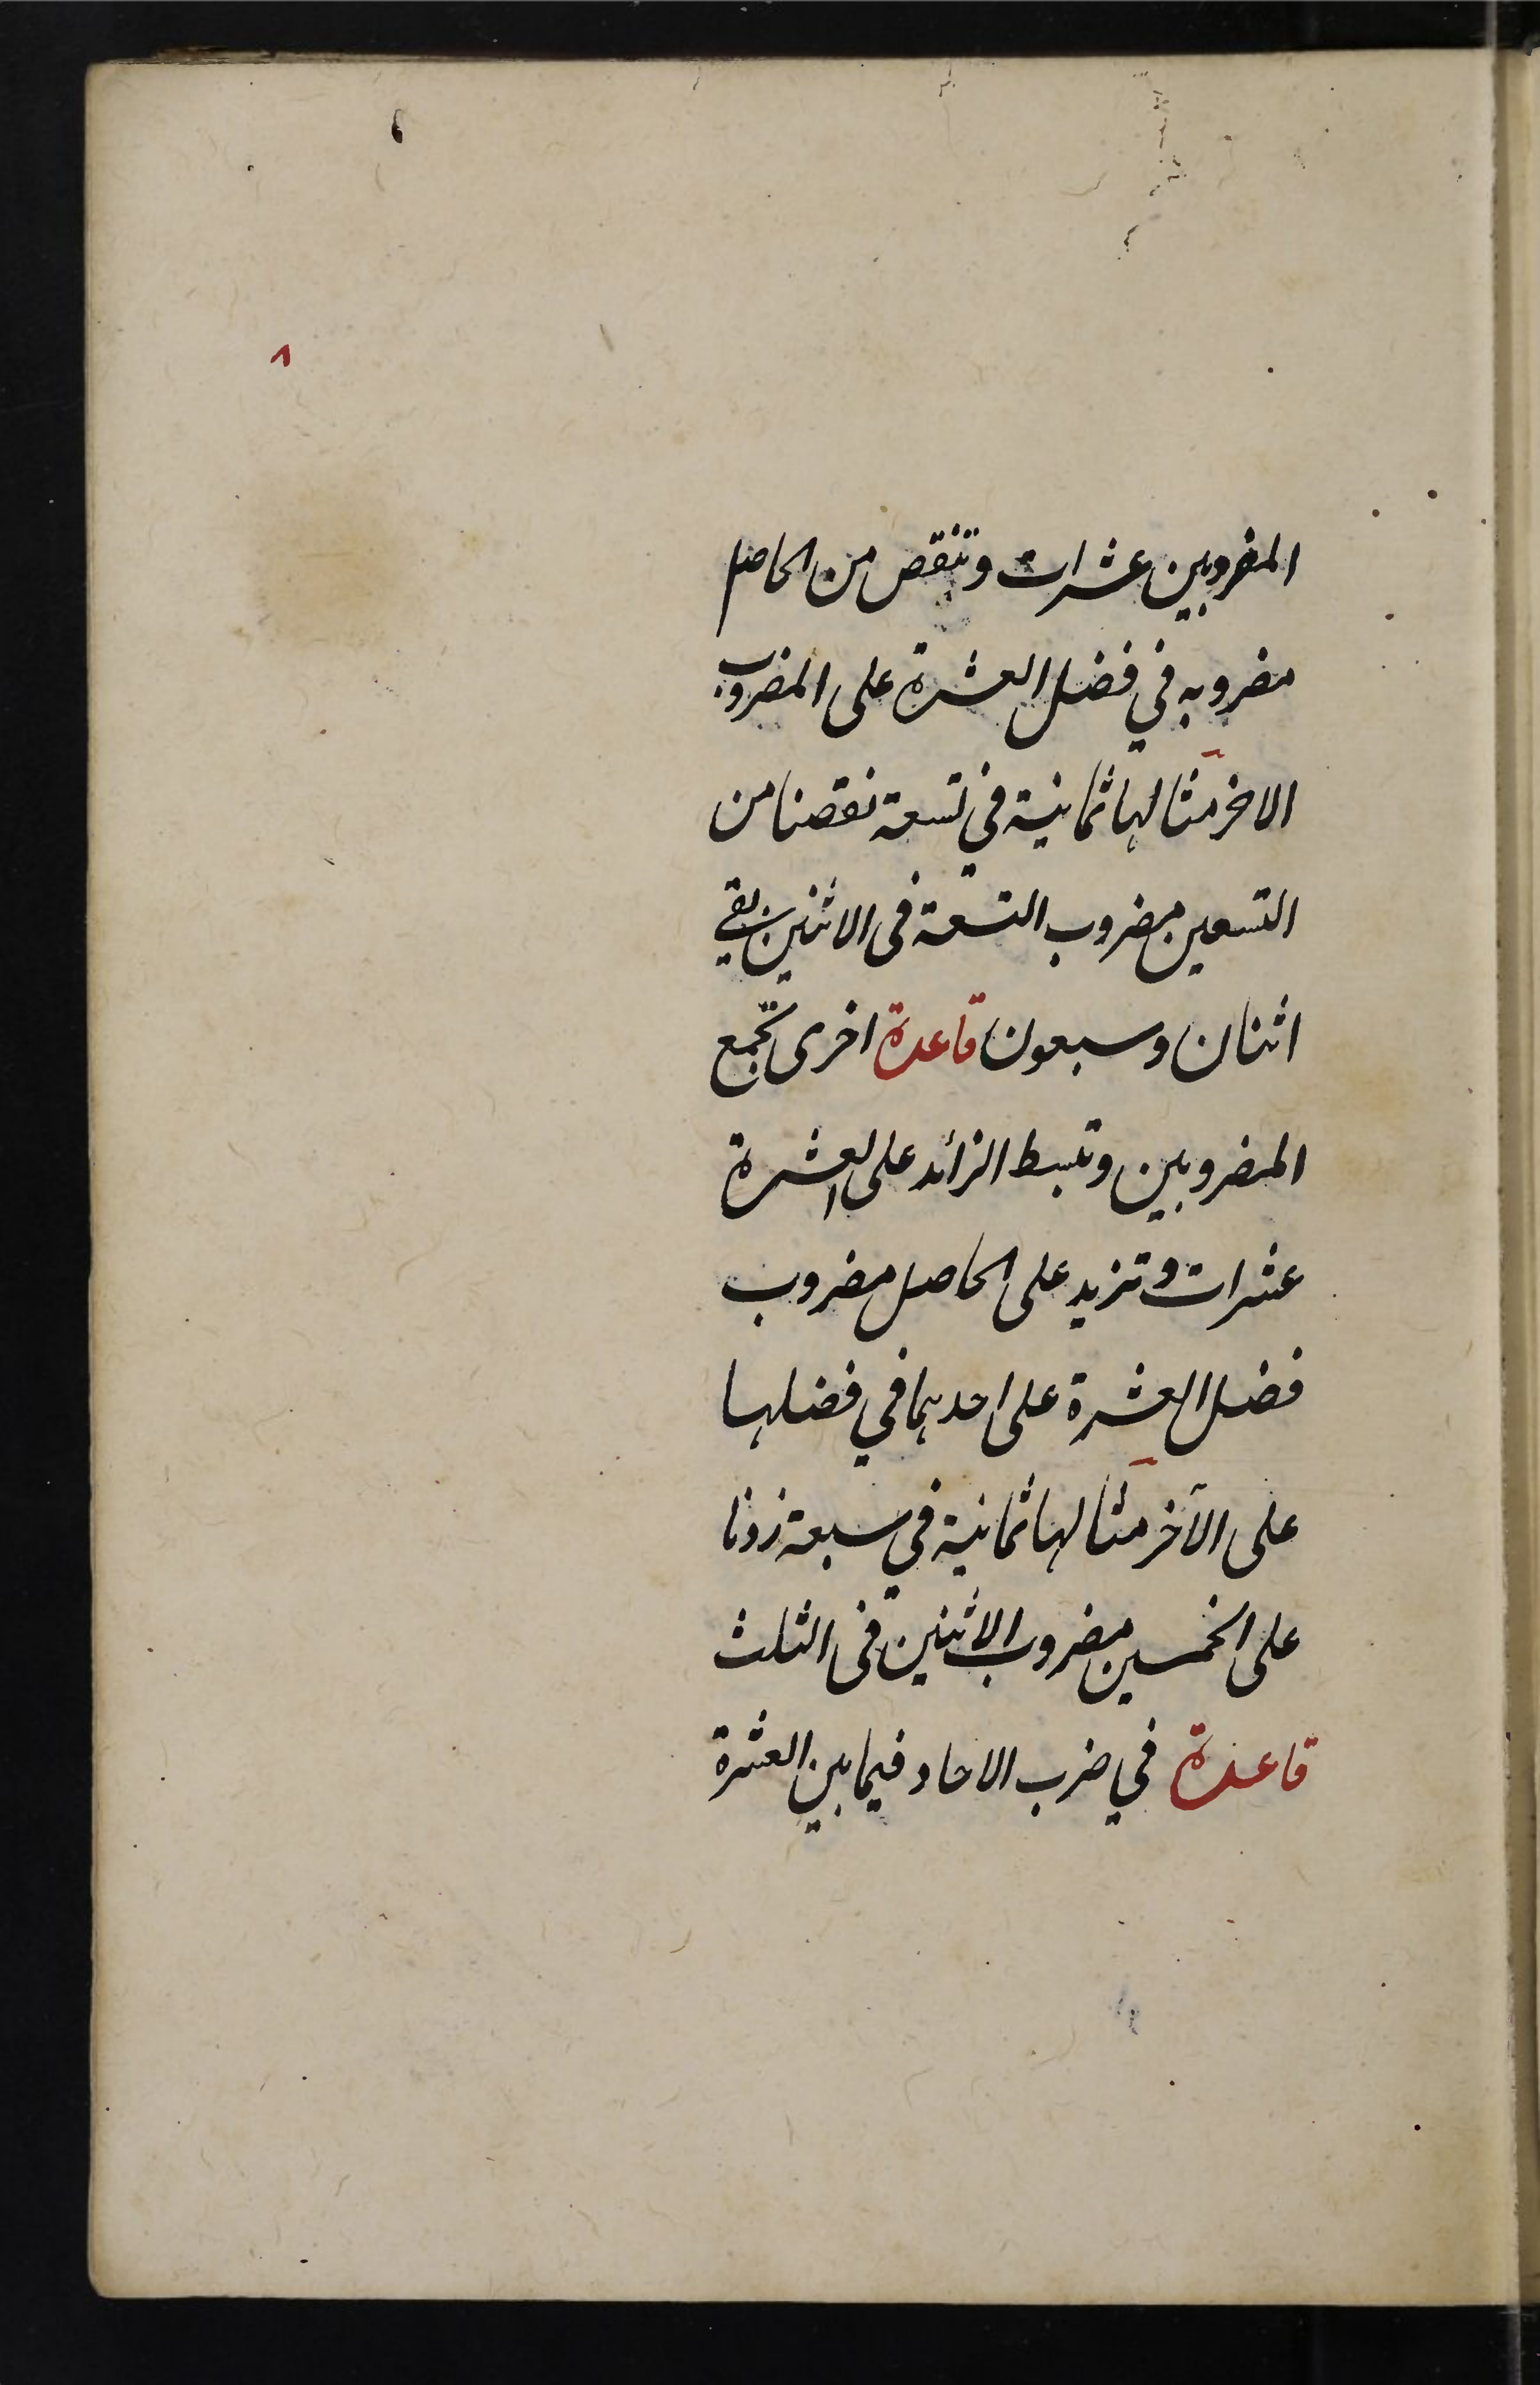 ٨
المضروبين عشرات وتنقص من الحاصل
مضروبه في فضل العشرة على المضروب
الاخر مثالها ثمانية في تسعة نقصنا من
التسعين مضروب التسعة فى الاثنين بقي
اثنان وسبعون قاعدة اخرى تجمع
المضروبين وتبسط الزائد على العشرة
عشرات وتزيد على الحاصل مضروب
فضل العشرة على احدهما في فضلها
على الآخر مثالها ثمانية في سبعة زدنا
على الخمسين مضروب الاثنين فى الثلث
قاعدة في ضرب الاحاد فيما بين العشرة